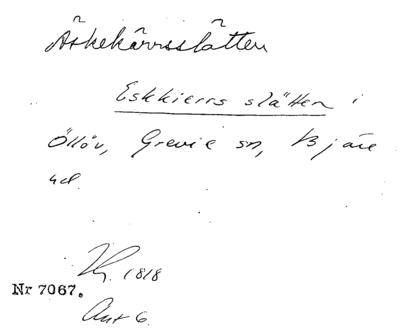 Äskekärrsslätten
Eskkierrs slätten i
Öllöv, Grevie sn, Bjäre
hd.
1818
Nr 7067.
Akt 6.